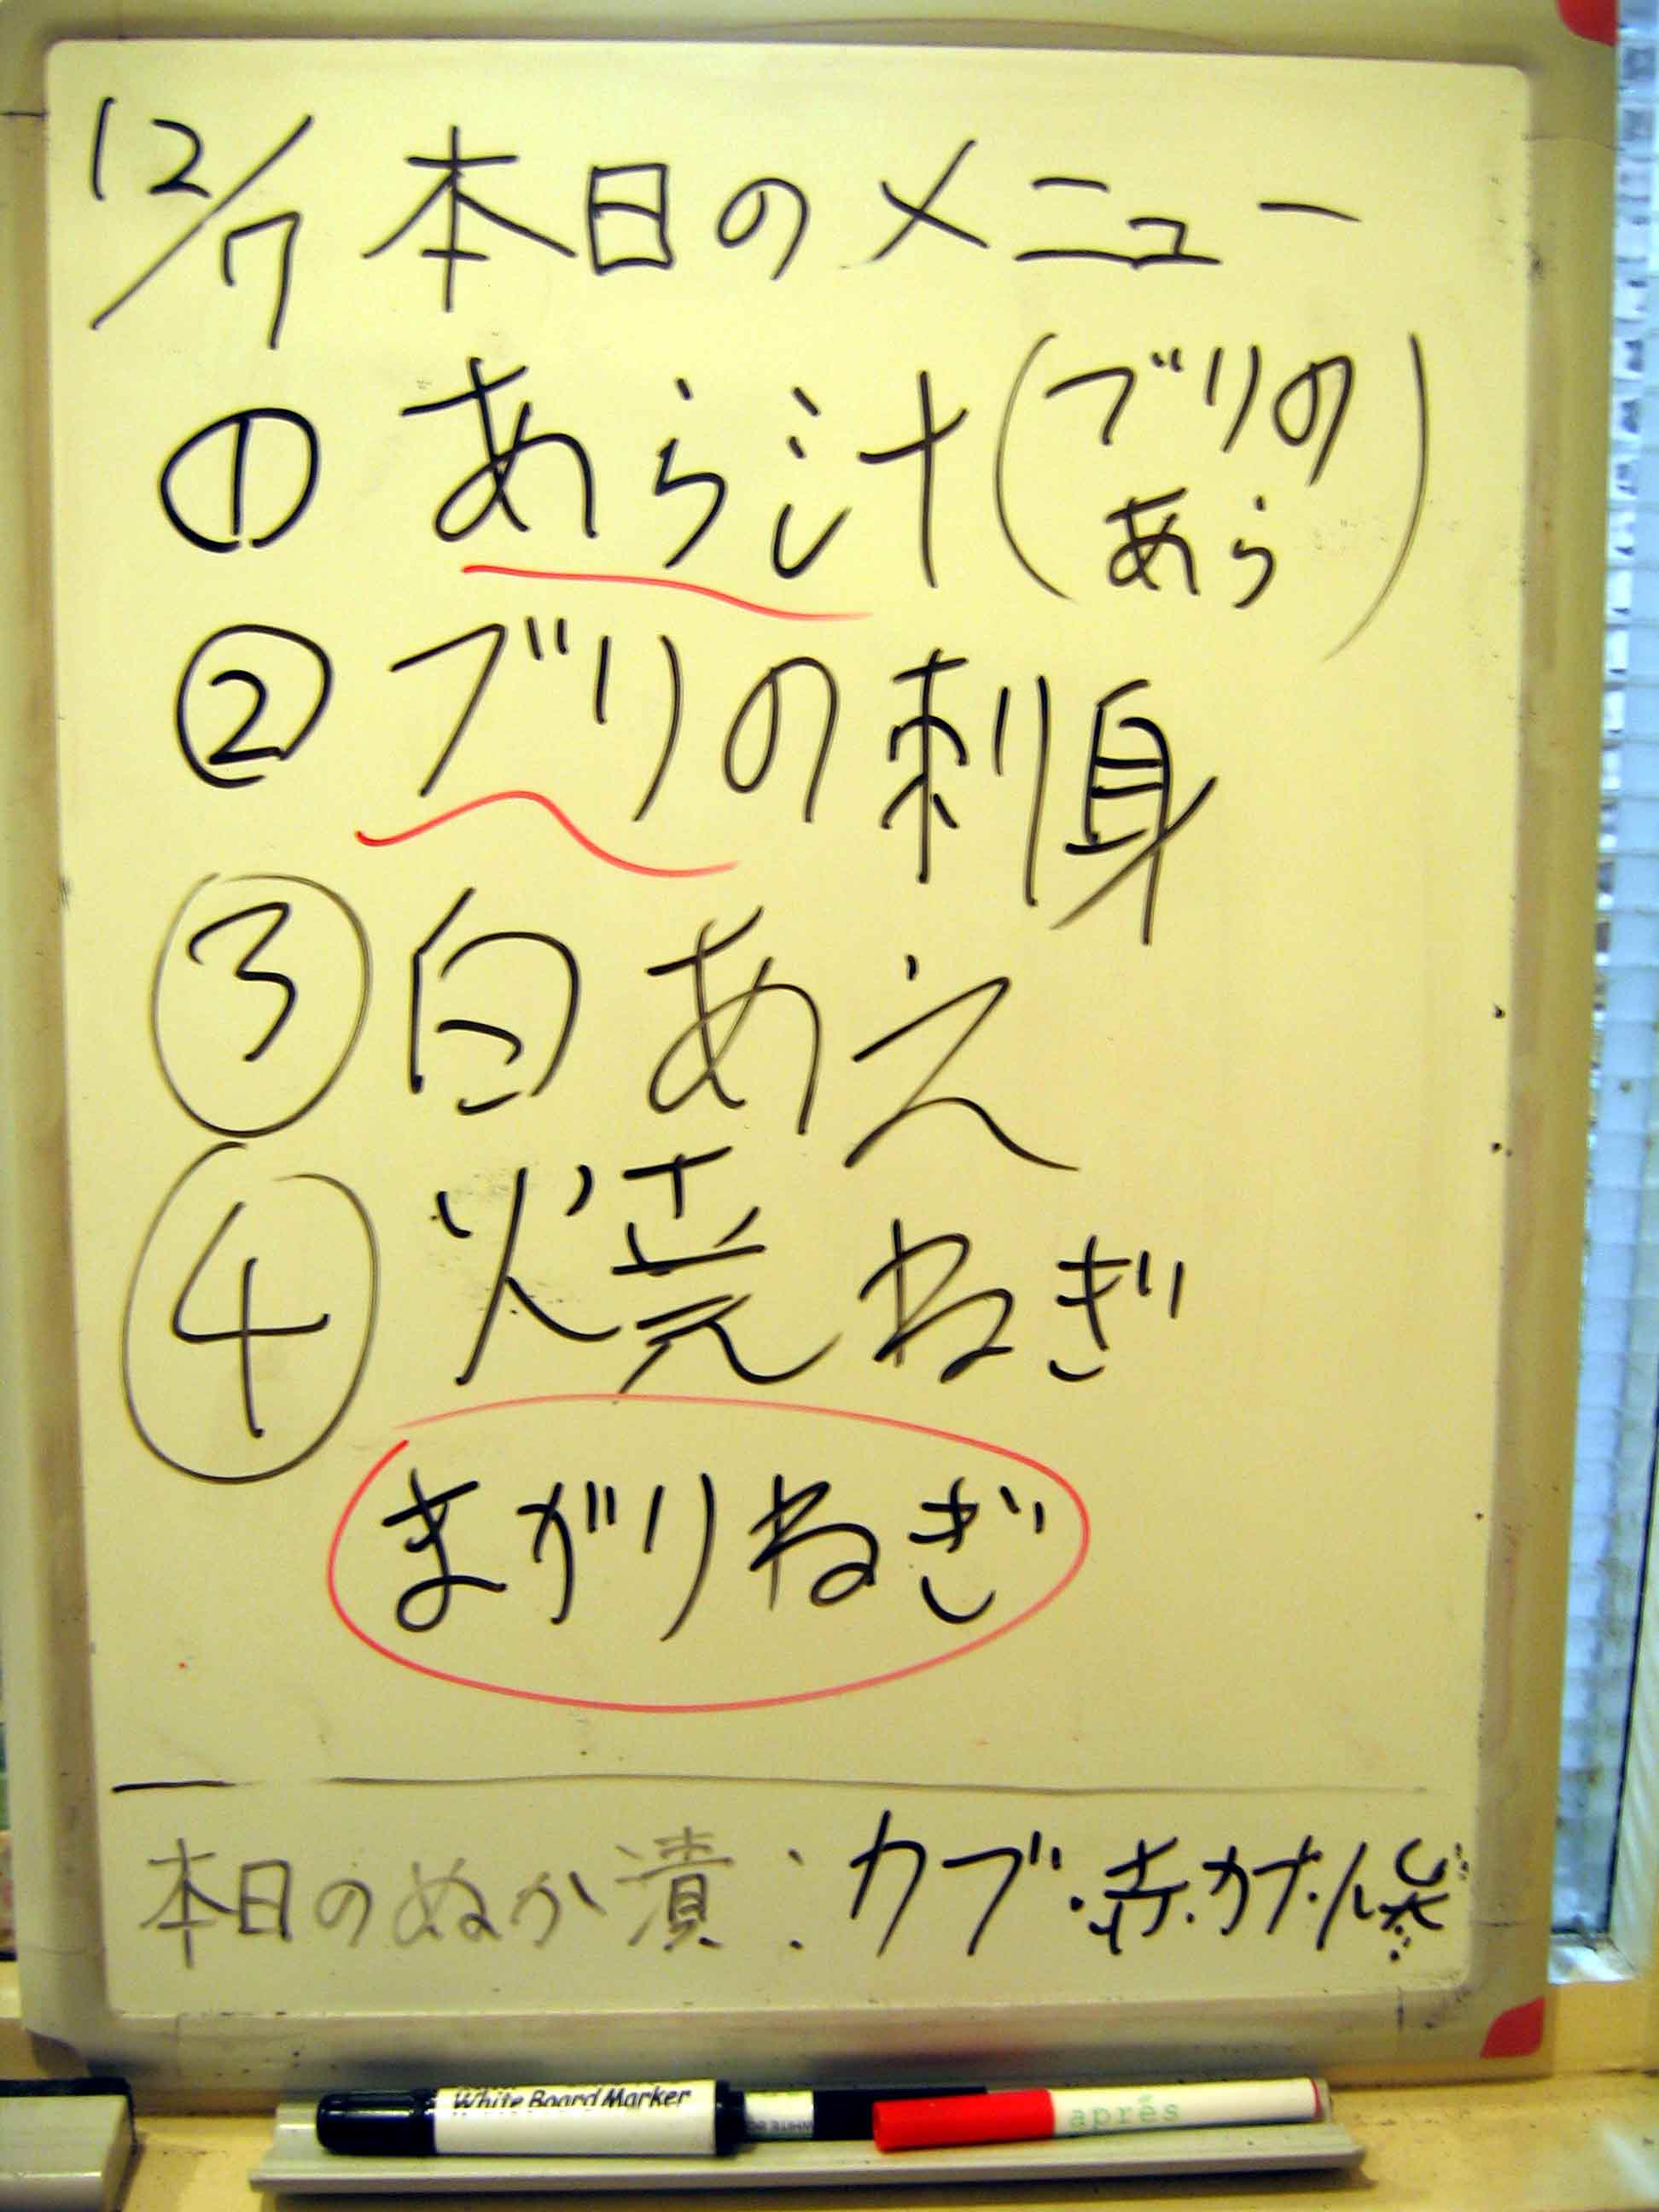 12/7 本日のメニュー
① あら汁(ブリのあら)
② ブリの刺身
③ 白あえ
④ 焼ねぎ
まがりねぎ
本日のぬか漬:カブ・赤カブ・八
White Board Marker
après